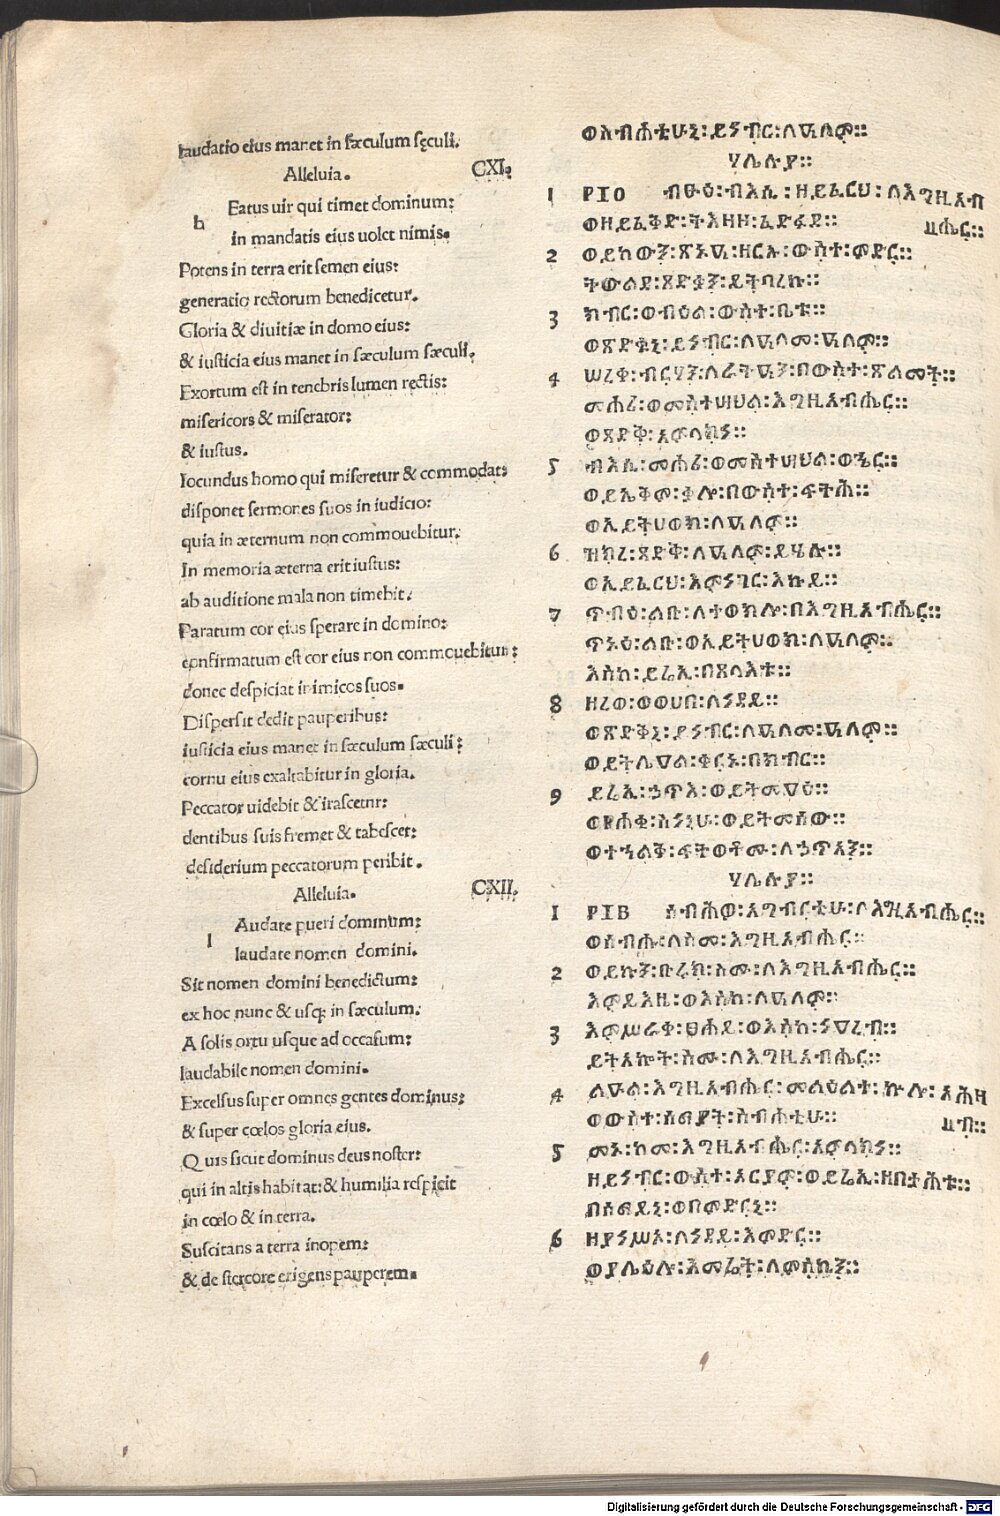 laudatio eius manet in sæculum sęculi.
Alleluia. CXI.
h Eatus uir qui timet dominum:
in mandatis eius uolet nimis.
Potens in terra erit semen eius:
generatio rectorum benedicetur.
Gloria & diuitiæ in domo eius:
& iusticia eius manet in sæculum sæculi.
Exortum est in tenebris lumen rectis:
misericors & miserator:
& iustus.
Iocundus homo qui miseretur & commodat:
disponet sermones suos in iudicio:
quia in æternum non commouebitur.
In memoria æterna erit iustus:
ab auditione mala non timebit.
Paratum cor eius sperare in domino:
confirmatum est cor eius non commouebitur:
donec despiciat inimicos suos.
Dispersit dedit pauperibus:
iusticia eius manet in sæculum sæculi:
cornu eius exaltabitur in gloria.
Peccator uidebit & irascetur:
dentibus suis fremet & tabescet:
desiderium peccatorum peribit.
Alleluia. CXII.
l Audate pueri dominum:
laudate nomen domini.
Sit nomen domini benedictum:
ex hoc nunc & usq; in sæculum.
A solis ortu usque ad occasum:
laudabile nomen domini.
Excelsus super omnes gentes dominus:
& super cœlos gloria eius.
Quis sicut dominus deus noster:
qui in altis habitat: & humilia respicit
in cœlo & in terra.
Suscitans a terra inopem:
& de stercore erigens pauperem.
ወስብሐቲሁኒ፡ይነብር፡ለዓለም።
ሃሌሉያ።
1 PIO ብፁዕ፡ብእሲ፡ዘይፈርህ፡ለእግዚአብ
ሔር።
ወዘይፈቅድ፡ትእዛዞ፡ፈድፋደ።
2 ወይከውን፡ጽኑዕ፡ዘርኡ፡ውስተ፡ምድር።
ትውልደ፡ጻድቃን፡ይትባረኩ።
3 ክብር፡ወብዕል፡ውስተ፡ቤቱ።
ወጽድቁኒ፡ይነብር፡ለዓለመ፡ዓለም።
4 ሠረቀ፡ብርሃን፡ለራትዓን፡በውስተ፡ጽልመት።
መሐሪ፡ወመስተሣህል፡እግዚአብሔር።
ወጻድቅ፡አምላክነ።
5 ብእሲ፡መሐሪ፡ወመስተሣህል፡ወኄር።
ወይኤቅም፡ቃሎ፡በውስተ፡ፍትሕ።
ወኢይትሀወክ፡ለዓለም።
6 ዝክረ፡ጻድቅ፡ለዓለም፡ይሄሉ።
ወኢይፈርህ፡እምነገር፡እኩይ።
7 ጥቡዕ፡ልቡ፡ለተወክሎ፡በእግዚአብሔር።
ጽኑዕ፡ልቡ፡ወኢይትሀወክ፡ለዓለም።
እስከ፡ይሬኢ፡በጸላእቱ።
8 ዘረወ፡ወወሀበ፡ለነዳይ።
ወጽድቁኒ፡ይነብር፡ለዓለመ፡ዓለም።
ወይትሌዐል፡ቀርኑ፡በክብር።
9 ይሬኢ፡ኃጥእ፡ወይትመዐዕ።
ወየሐቂ፡ስነኒሁ፡ወይትመሰው።
ወተኀልቅ፡ፍትወቶሙ፡ለኃጥኣን።
ሃሌሉያ።
1 PIB ሰብሕዎ፡አግብርቲሁ፡ለእግዚአብሔር።
ወሰብሑ፡ለስመ፡እግዚአብሔር።
2 ወይኩን፡ቡሩክ፡ስሙ፡ለእግዚአብሔር።
እምይእዜ፡ወእስከ፡ለዓለም።
3 እምሥራቀ፡ፀሐይ፡ወእስከ፡ነዐረብ።
ይትአኰት፡ስሙ፡ለእግዚአብሔር።
4 ልዑል፡እግዚአብሔር፡መልዕልተ፡ኵሉ፡አሕዛ
ብ።
ወውስተ፡ሰማያት፡ስብሐቲሁ።
5 መኑ፡ከመ፡እግዚአብሔር፡አምላክነ።
ዘይነብር፡ውስተ፡አርያም፡ወይሬኢ፡ዘበታሕቱ።
በሰማይኒ፡ወበምድርኒ።
6 ዘያነሥኦ፡ለነዳይ፡እምድር።
ወያሌዕሎ፡እመሬት፡ለምስኪን።
Digitalisierung gefördert durch die Deutsche Forschungsgemeinschaft - DFG